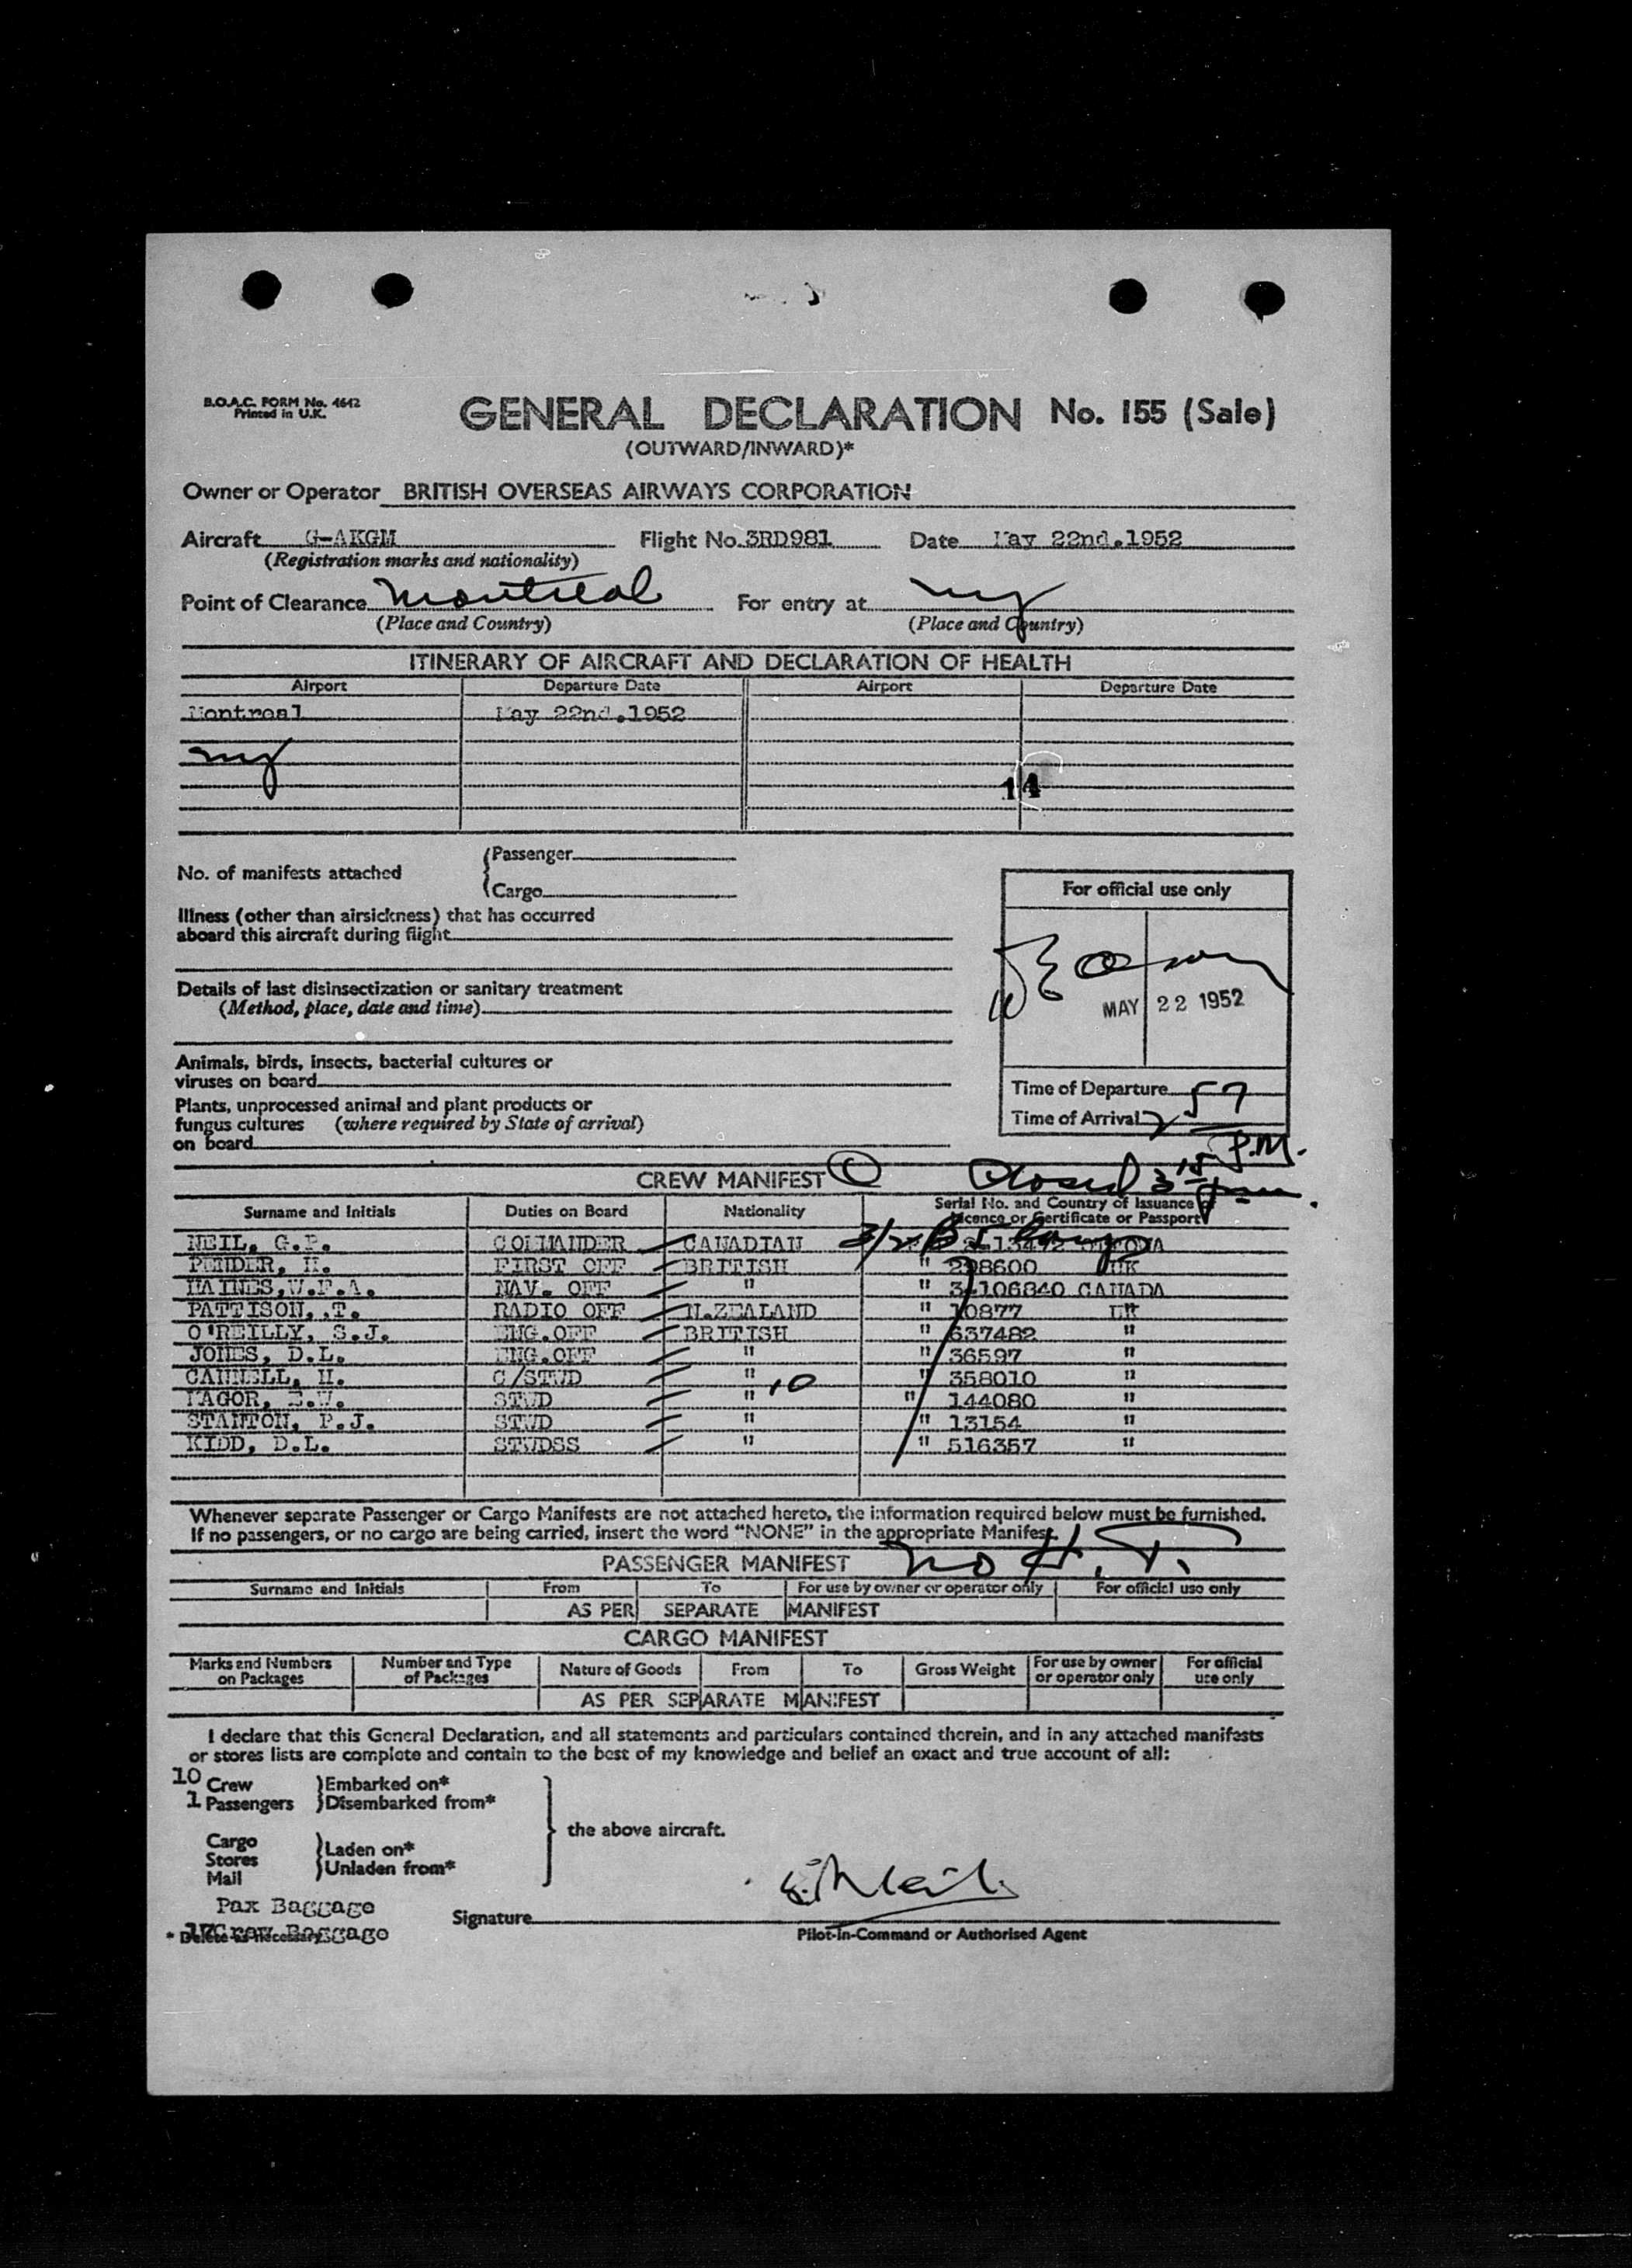 B.O.A.C. FORM No. 4642
Printed in U.K.
GENERAL DECLARATION No. 155 (Sale)
(OUTWARD/INWARD)*
Owner or Operator BRITISH OVERSEAS AIRWAYS CORPORATION
Aircraft G-AKGM Flight No. 3RD981 Date May 22nd.1952
(Registration marks and nationality)
Point of Clearance Montreal For entry at NY
(Place and Country) (Place and Country)
ITINERARY OF AIRCRAFT AND DECLARATION OF HEALTH
Airport Departure Date Airport Departure Date
Montreal May 22nd.1952
NY
14
No. of manifests attached
Passenger
Cargo
For official use only
Illness (other than airsickness) that has occurred
aboard this aircraft during flight
Details of last disinsectization or sanitary treatment
(Method, place, date and time)
MAY 22 1952
Animals, birds, insects, bacterial cultures or
viruses on board
Plants, unprocessed animal and plant products or
fungus cultures (where required by State of arrival)
on board
Time of Departure
Time of Arrival 2 57
P.M.
CREW MANIFEST C Closed 3 15
Surname and Initials Duties on Board Nationality Serial No. and Country of Issuance of
Licence or Certificate or Passport
NEIL, G.P. COMMANDER CANADIAN
PENDER, H. FIRST OFF BRITISH " 298600 UK
HAINES,W.F.A. NAV. OFF " " 34106840 CANADA
PATTISON,.T. RADIO OFF N.ZEALAND " 10877 UK
O'REILLY, S.J. ENG.OFF BRITISH " 637482 "
JONES, D.L. ENG.OFF " " 36597 "
CANNELL, H. C/STWD " " 358010 "
10
MAGOR, E.W. STWD " " 144080 "
STANTON, P.J. STWD " " 13154 "
KIDD, D.L. STWDSS " " 516357 "
Whenever separate Passenger or Cargo Manifests are not attached hereto, the information required below must be furnished.
If no passengers, or no cargo are being carried, insert the word "NONE" in the appropriate Manifest.
PASSENGER MANIFEST No H.T.
Surname and Initials From To For use by owner or operator only For official use only
AS PER SEPARATE MANIFEST
CARGO MANIFEST
Marks and Numbers on Packages Number and Type of Packages Nature of Goods From To Gross Weight For use by owner or operator only For official use only
AS PER SEPARATE MANIFEST
I declare that this General Declaration, and all statements and particulars contained therein, and in any attached manifests
or stores lists are complete and contain to the best of my knowledge and belief an exact and true account of all:
10 Crew Embarked on*
1 Passengers Disembarked from*
the above aircraft.
Cargo
Stores
Mail
Laden on*
Unladen from*
Pax Baggage
Signature
* Delete as necessary
Crew Baggage
Pilot-in-Command or Authorised Agent